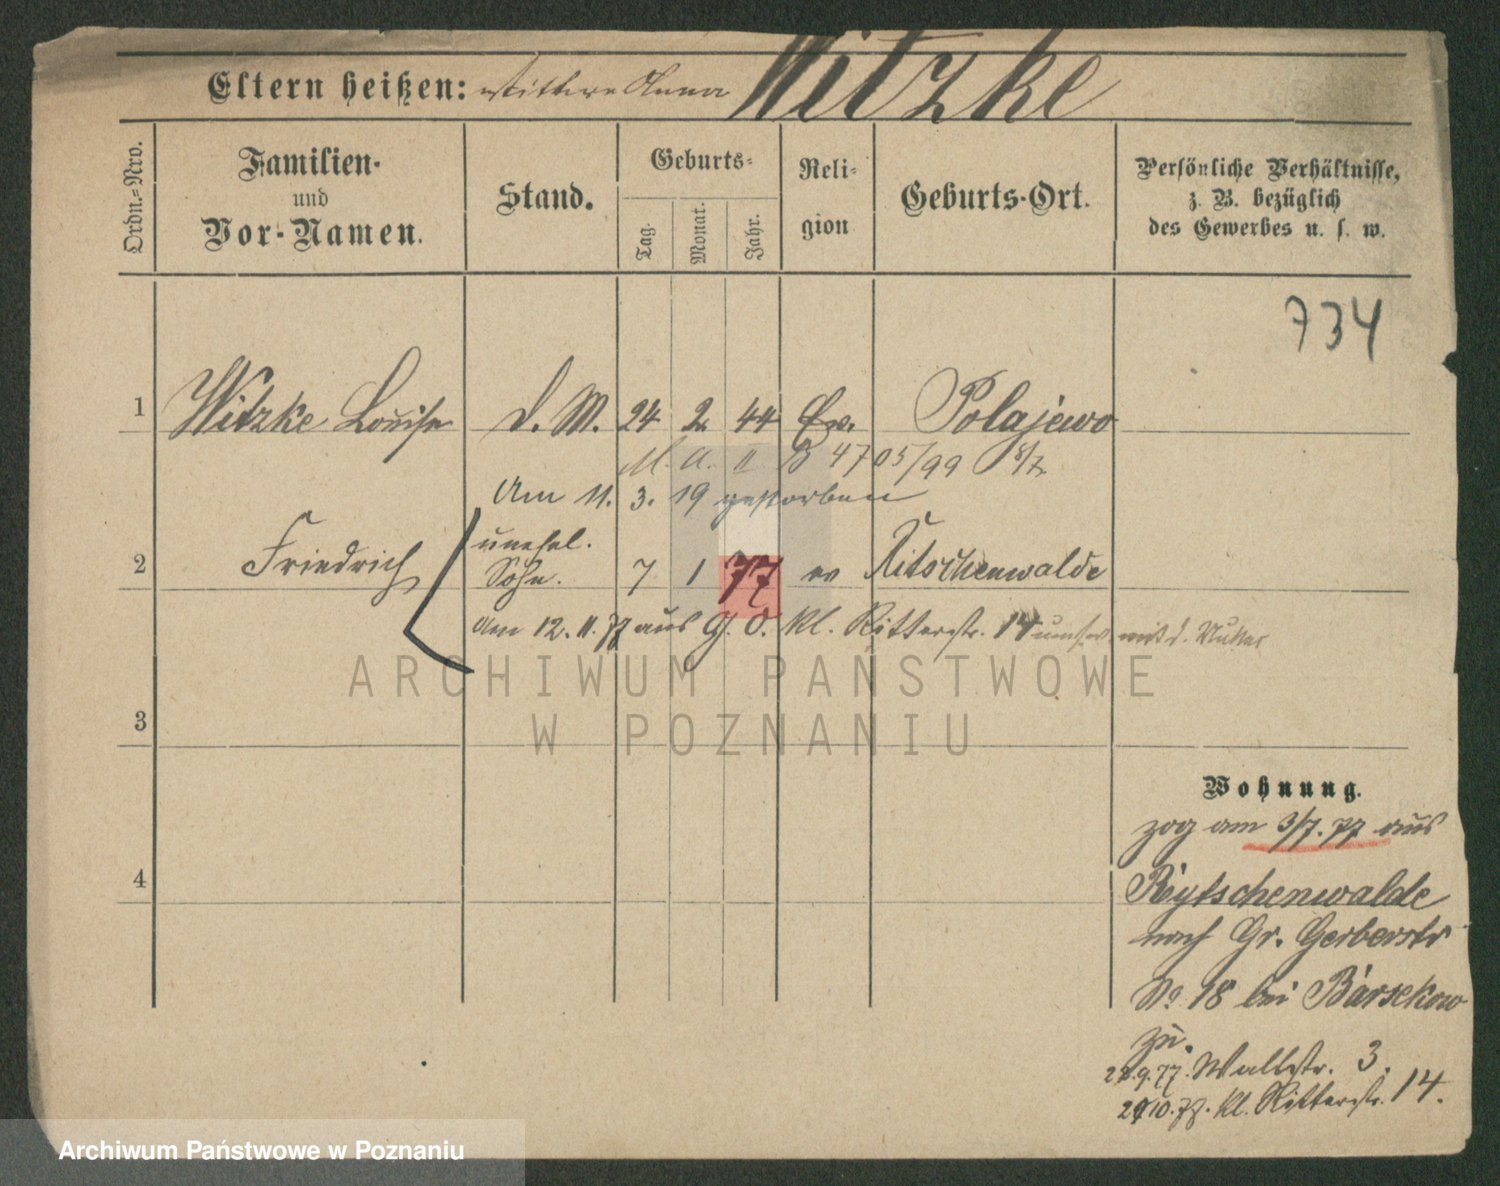 Eltern heißen: Anna Witzke
Ordn.=Nro.
Familien-
und
Vor-Namen.
Stand.
Geburts-
Tag.
Monat.
Jahr.
Reli-
gion
Geburts-Ort.
Persönliche Verhältnisse,
z. B. bezüglich
des Gewerbes u. s. w.
734
1 Witzke Louise d. M. 24 2 44 Ev. Polajewo
M. A. II B 4705/99
Am 11. 3. 19 gestorben
2 Friedrich unehel. Sohn. 7 1 77 ev Ritschenwalde
Am 12. 11. 77 aus G. O. Kl. Ritterstr. 14 mit d. Mutter
3
4
Wohnung.
zog am 3/7. 77 aus
Rytschenwalde
nach Gr. Gerberstr
No 18 bei Barsekow
zu.
9. 77. Wallstr. 3.
10. 77. Kl. Ritterstr. 14.
ARCHIWUM PAŃSTWOWE
W POZNANIU
Archiwum Państwowe w Poznaniu